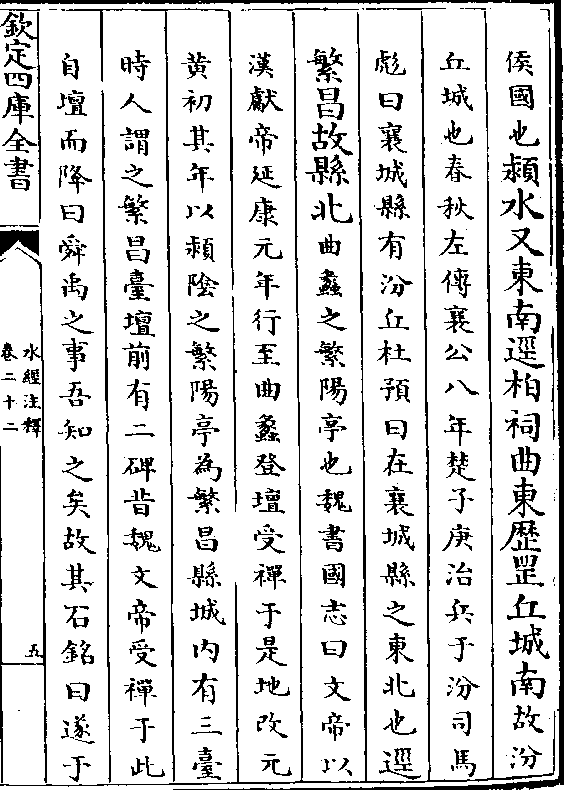 侯國也潁水又東南逕柏祠曲東歴罡丘城南故汾
丘城也春秋左傳襄公八年楚子庚治兵于汾司馬
彪曰襄城縣有汾丘杜預曰在襄城縣之東北也逕
繁昌故縣北曲蠡之繁陽亭也魏書國志曰文帝以
漢獻帝延康元年行至曲蠡登壇受禪于是地改元
黄初其年以潁隂之繁陽亭為繁昌縣城内有三臺
時人謂之繁昌臺壇前有二碑昔魏文帝受禪于此
自壇而降曰舜禹之事吾知之矣故其石銘曰遂于
欽定四庫全書
水經注釋
卷二十二
五